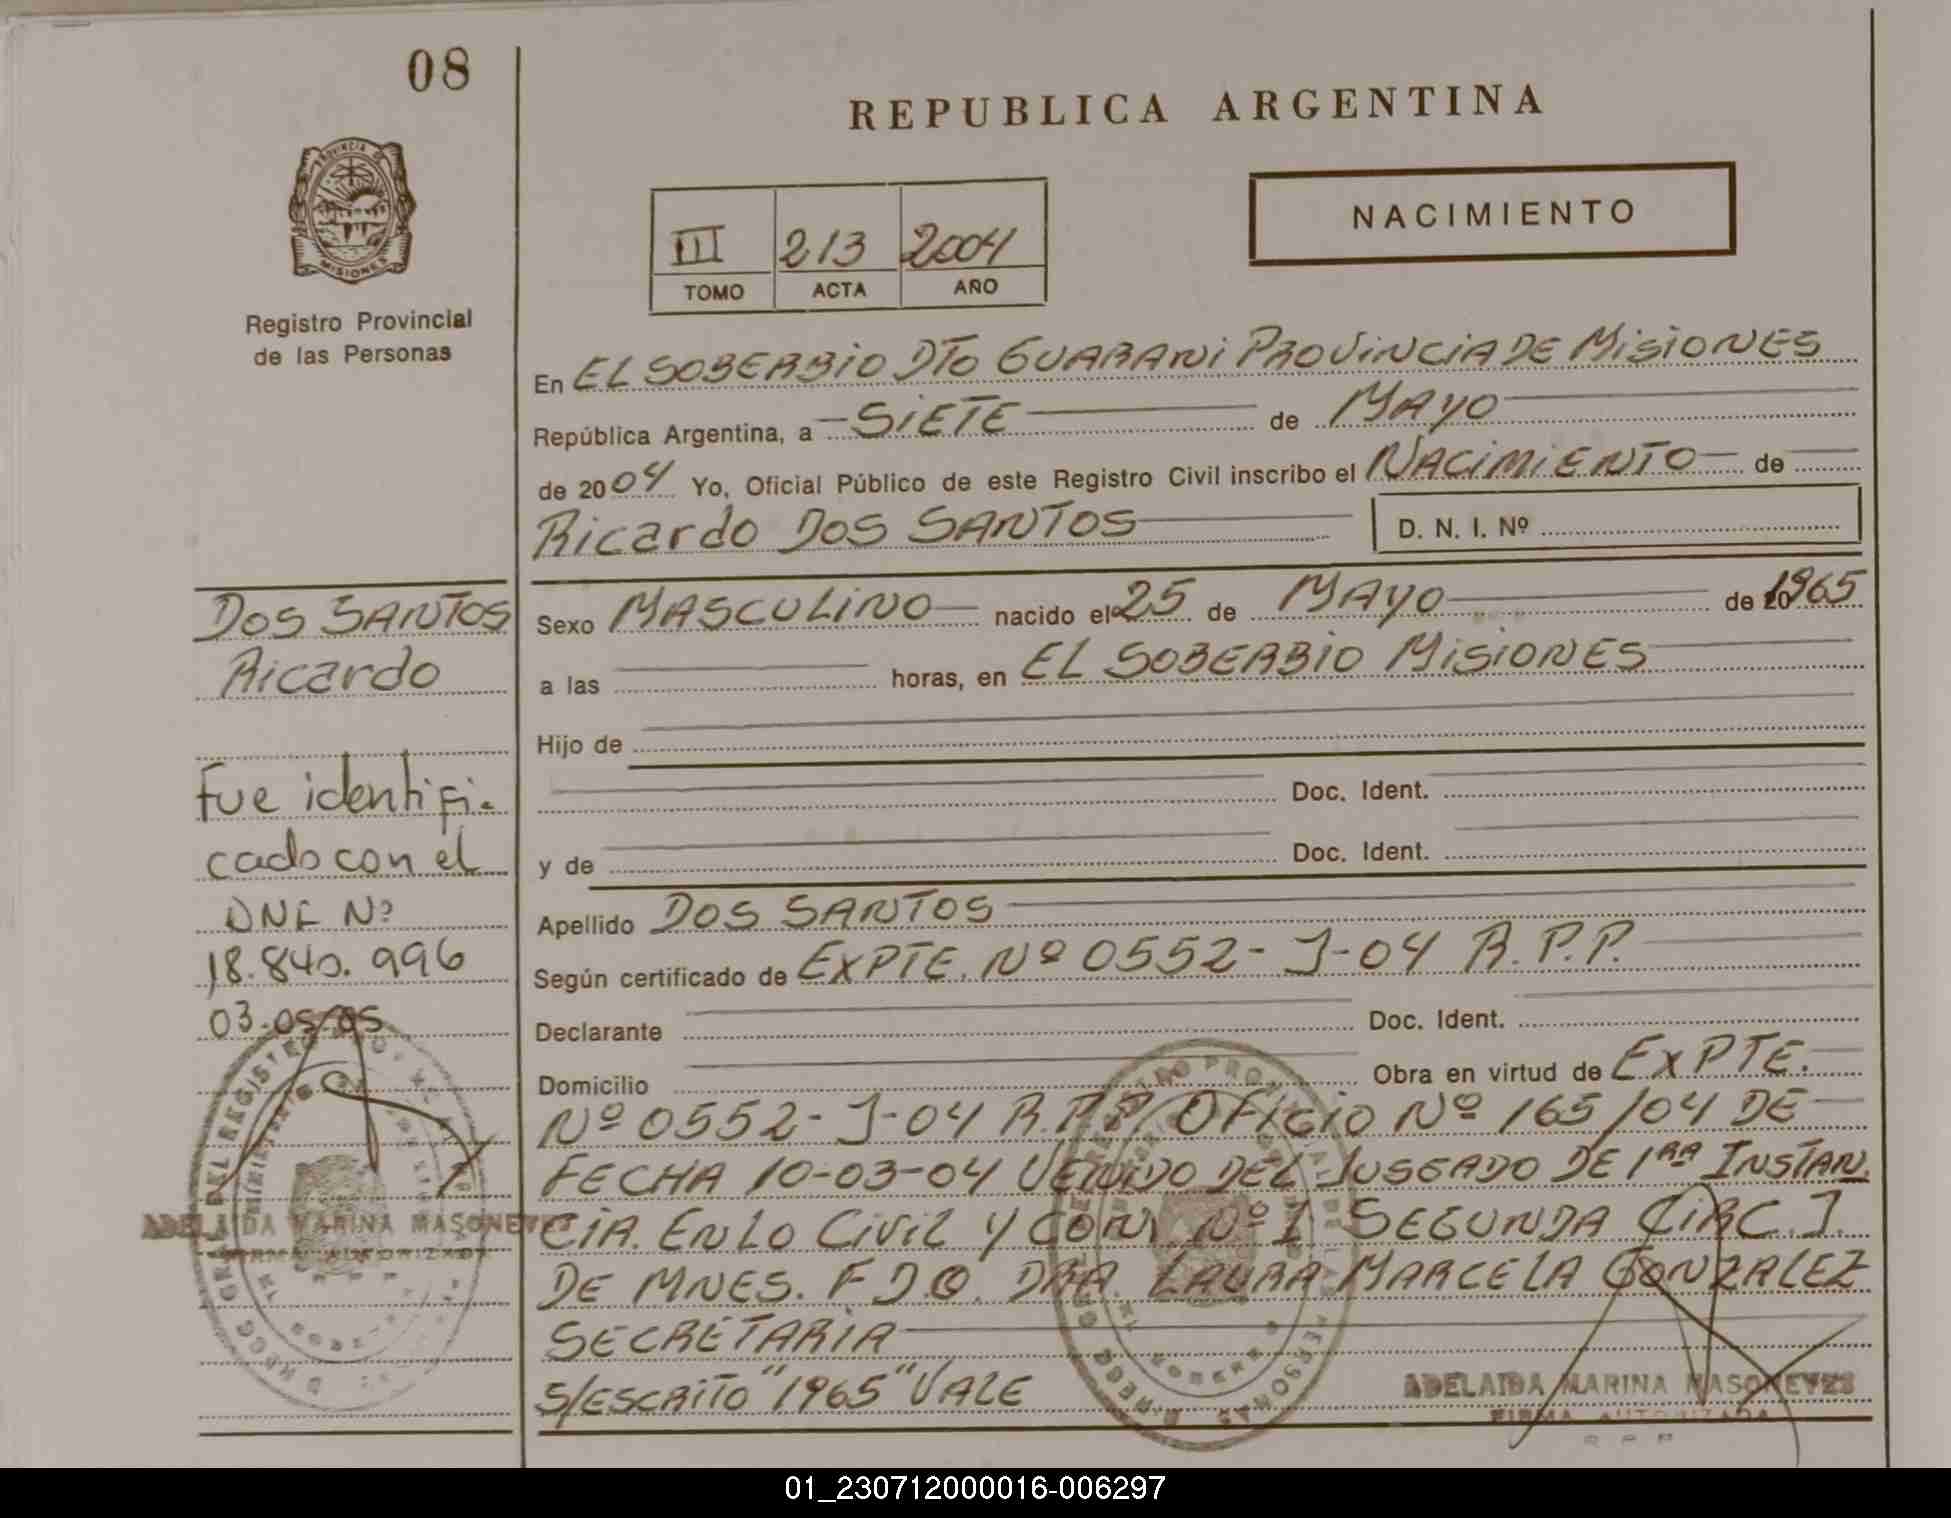 08
REPUBLICA ARGENTINA
PROVINCIA DE
MISIONES
Registro Provincial
de las Personas
NACIMIENTO
III 213 2004
TOMO ACTA AÑO
En EL SOBERBIO DTO GUARANI PROVINCIA DE MISIONES
República Argentina, a SIETE de MAYO
de 2004 Yo, Oficial Público de este Registro Civil inscribo el NACIMIENTO de
Ricardo DOS SANTOS D. N. I. Nº
Sexo MASCULINO nacido el 25 de MAYO de 1965
a las horas, en EL SOBERBIO MISIONES
Hijo de
Doc. Ident.
y de Doc. Ident.
Apellido DOS SANTOS
Según certificado de EXPTE. Nº 0552-J-04 R.P.P.
Declarante Doc. Ident.
Domicilio Obra en virtud de EXPTE.
Nº 0552-J-04 R.P.P. OFICIO Nº 165/04 DE
FECHA 10-03-04 VENIDO DEL JUSGADO DE 1RA INSTAN.
CIA. EN LO CIVIL Y COM. Nº 1 SEGUNDA CIRC. J.
DE MNES. F.D.O. DRA. LAURA MARCELA GONZALEZ
SECRETARIA
S/ESCRITO "1965" VALE
ADELAIDA MARINA MASONEVES
FIRMA AUTORIZADA
R P P
DOS SANTOS
Ricardo
Fue identifi-
cado con el
DNI Nº
18.840.996
03-05-05
ADELAIDA MARINA MASONEVES
FIRMA AUTORIZADA
01_230712000016-006297